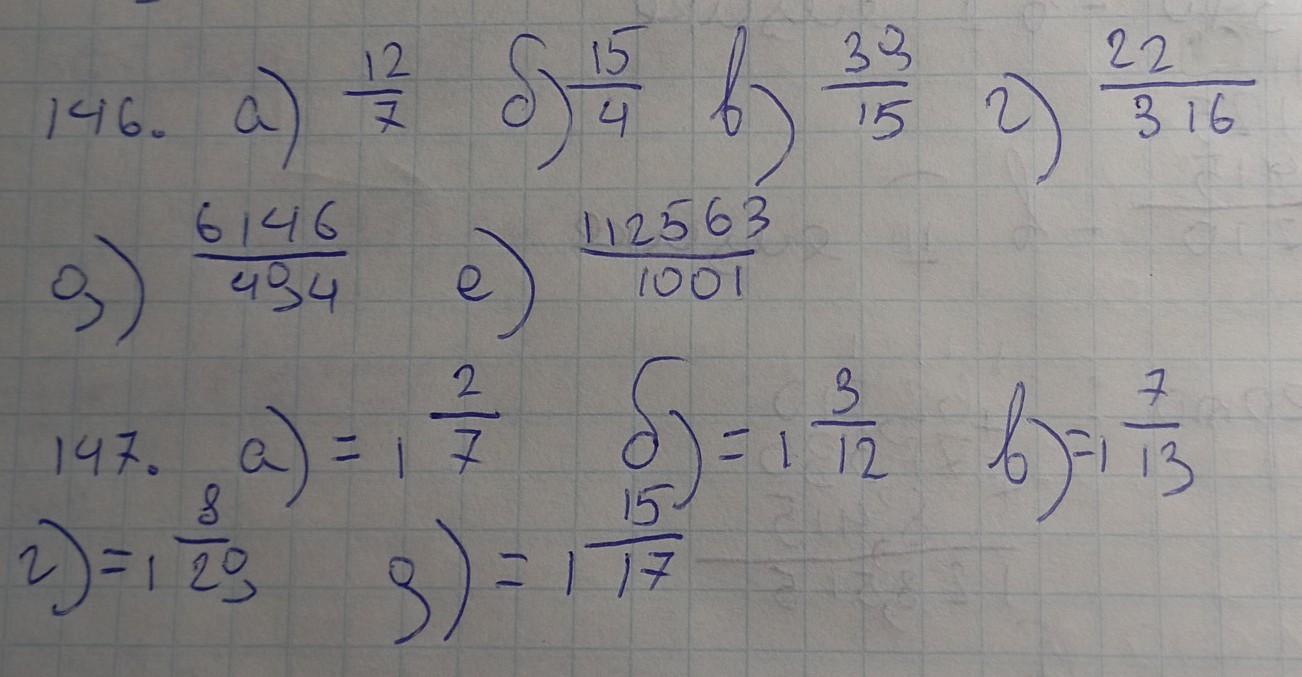 146. а) 12/7 б) 15/4 в) 39/15 г) 22/316
д) 6146/494 е) 112563/1001
147. а) = 1 2/7 б) = 1 3/12 в) = 1 7/13
г) = 1 8/29 д) = 1 15/17